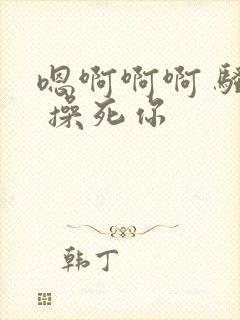 嗯啊啊啊 骚
操死你
韩丁